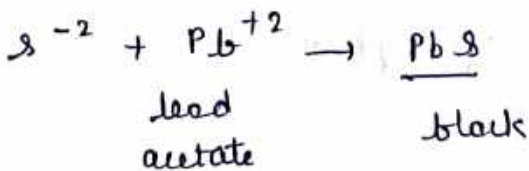 s⁻² + Pb⁺² → PbS
lead
acetate
black